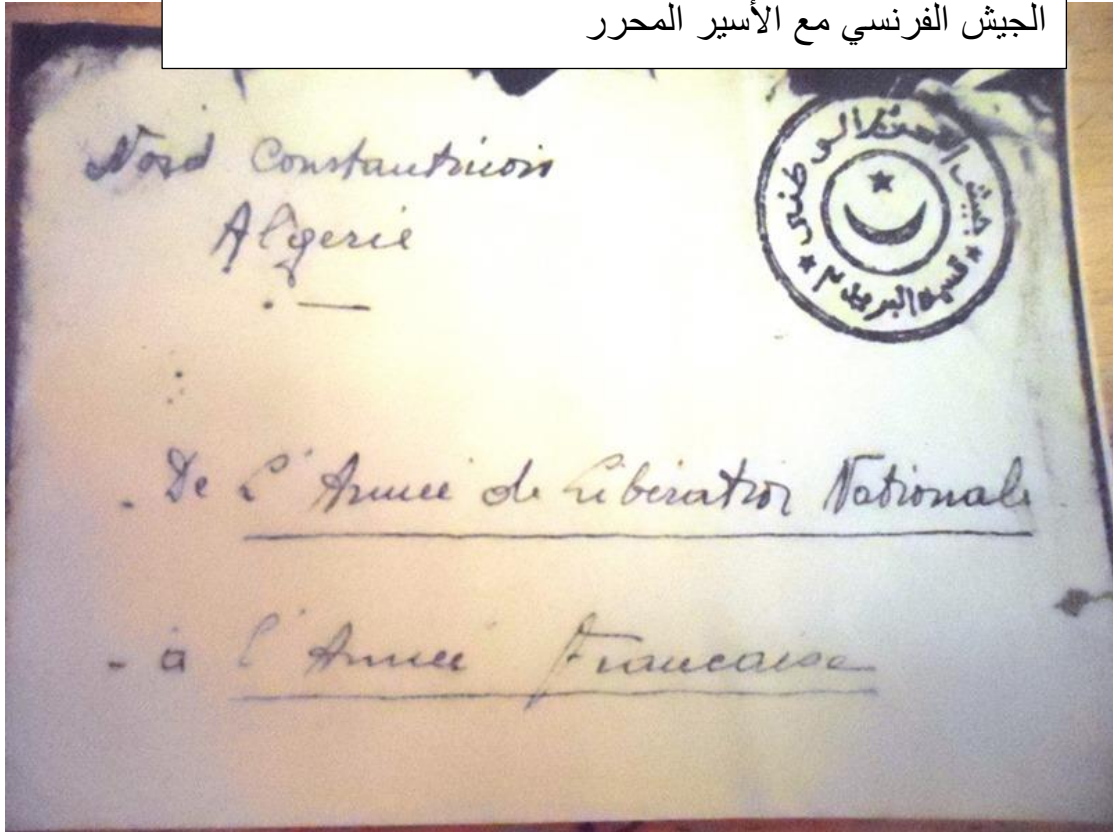 الجيش الفرنسي مع الأسير المحرر
Nord Constantinois
Algerie
جيش التحرير الوطني
قسمة البريد ٢
- De L'Armée de Libération Nationale
- à l'Armée Francaise